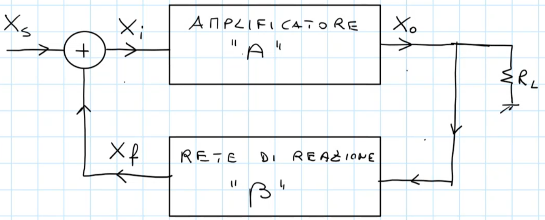 Xs
+
Xi
AMPLIFICATORE
"A"
Xo
RL
Xf
RETE DI REAZIONE
"β"